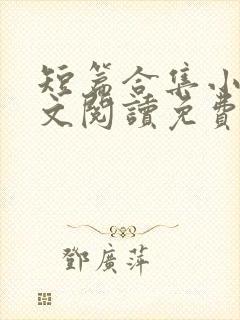 短篇合集小
文閱讀免費
鄧廣萍